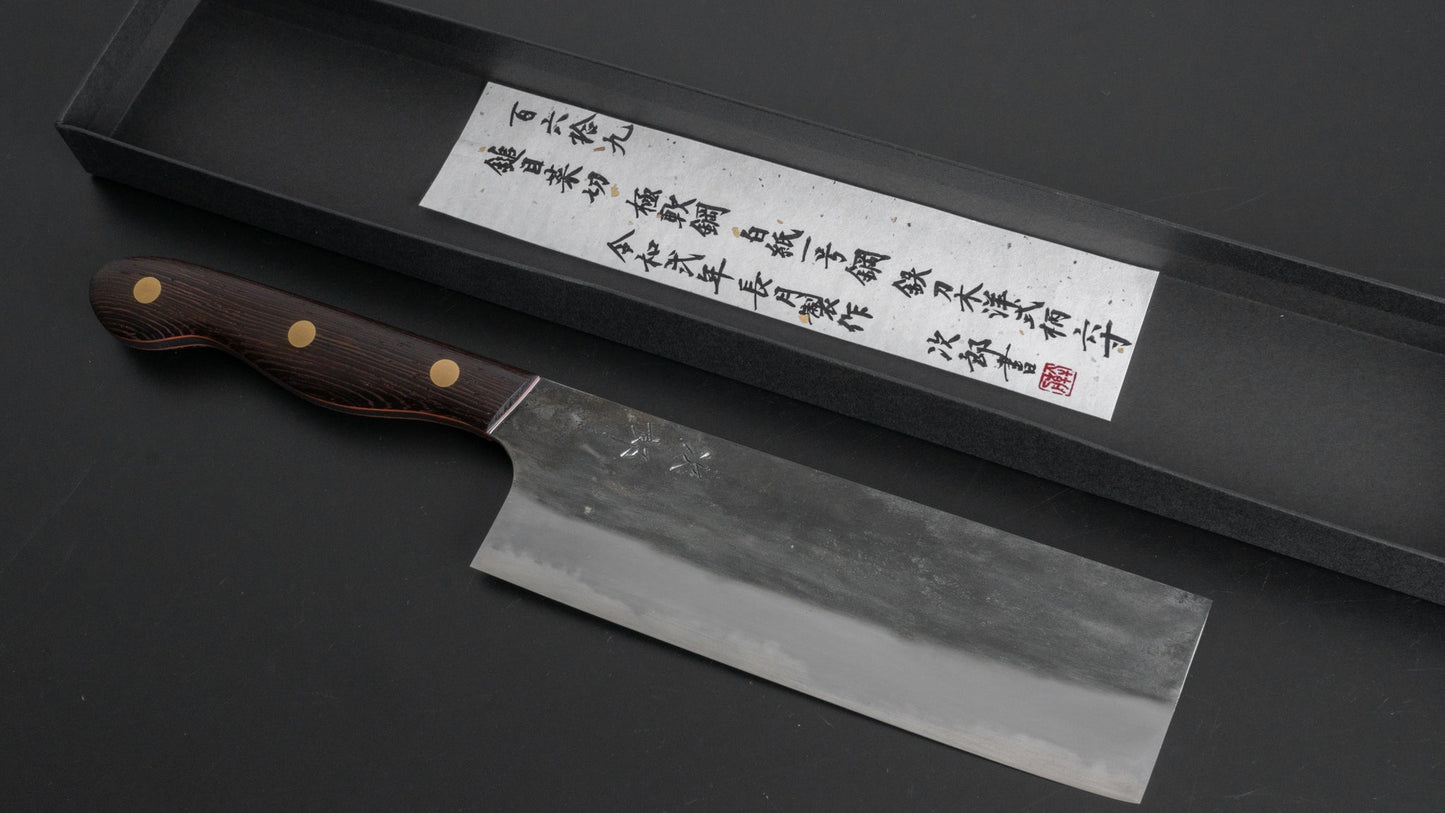 百六拾九
鎚目菜切 極軟鋼 白紙一号鋼 鉄刀木洋式柄 六寸
令和弐年長月製作 次郎書